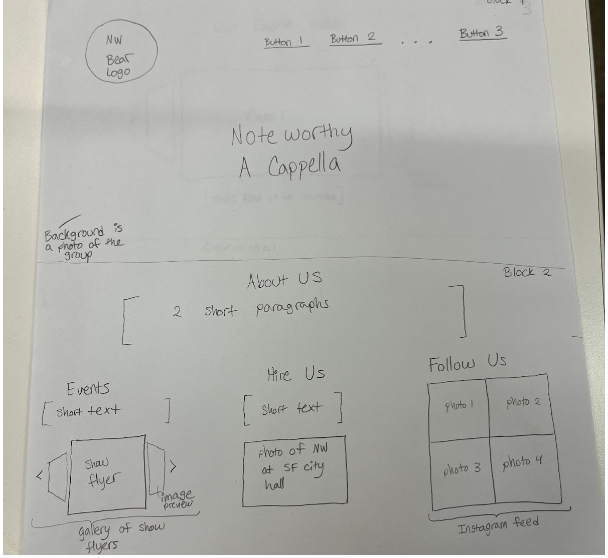 NW
Bear
Logo
Button 1 Button 2 . . . Button 3
Noteworthy
A Cappella
Background is
a photo of the
group
Block 2
About Us
[ 2 short paragraphs ]
Events
[ short text ]
< show
flyer >
image
preview
gallery of show
flyers
Hire Us
[ short text ]
photo of NW
at SF city
hall
Follow Us
photo 1 photo 2
photo 3 photo 4
Instagram feed